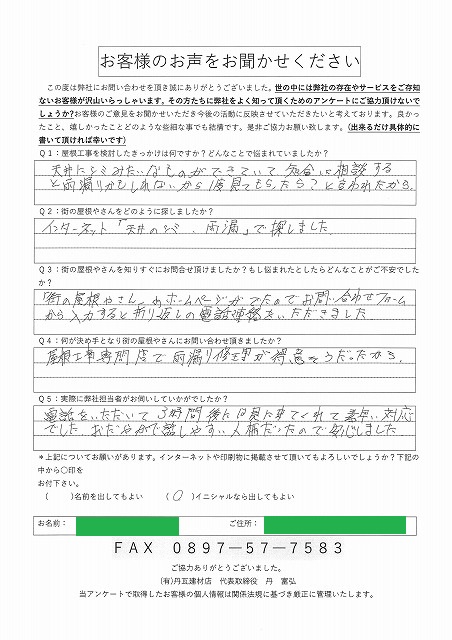 お客様のお声をお聞かせください
この度は弊社にお問い合わせを頂き誠にありがとうございました。世の中には弊社の存在やサービスをご存知
ないお客様が沢山いらっしゃいます。その方たちに弊社をよく知って頂くためのアンケートにご協力頂けないで
しょうか?お客様のご意見をお聞かせいただき今後の活動に反映させていただきたいと考えております。良かっ
たこと、嬉しかったことどのような些細な事でも結構です。是非ご協力お願い致します。(出来るだけ具体的に
書いて頂ければ幸いです)
Q1:屋根工事を検討したきっかけは何ですか?どんなことで悩まれていましたか?
天井にシミみたいなものができていて 知合いに相談する
と雨漏りかもしれないから1度見てもらったら?と言われたから。
Q2:街の屋根やさんをどのように探しましたか?
インターネット「天井のシミ、雨漏」で探しました
Q3:街の屋根やさんを知りすぐにお問合せ頂けましたか?もし悩まれたとしたらどんなことがご不安でした
か?
「街の屋根やさん」のホームページがでたのでお問い合わせフォーム
から入力すると折り返しの電話連絡をいただきました
Q4:何が決め手となり街の屋根やさんにお問い合わせ頂きましたか?
屋根工事専門店で雨漏り修理が得意そうだったから。
Q5:実際に弊社担当者がお伺いしていかがでしたか?
電話をいただいて3時間後に見に来てくれて素早い対応
でした おだやかで話しやすい人柄だったので安心しました
*上記についてお願いがあります。インターネットや印刷物に掲載させて頂いてもよろしいでしょうか?下記の
中から○印を
お付下さい。
( )名前を出してもよい ( ○ )イニシャルなら出してもよい
お名前: ご住所:
FAX 0897-57-7583
ご協力ありがとうございました。
(有)丹瓦建材店 代表取締役 丹 富弘
当アンケートで取得したお客様の個人情報は関係法規に基づき厳正に管理いたします。